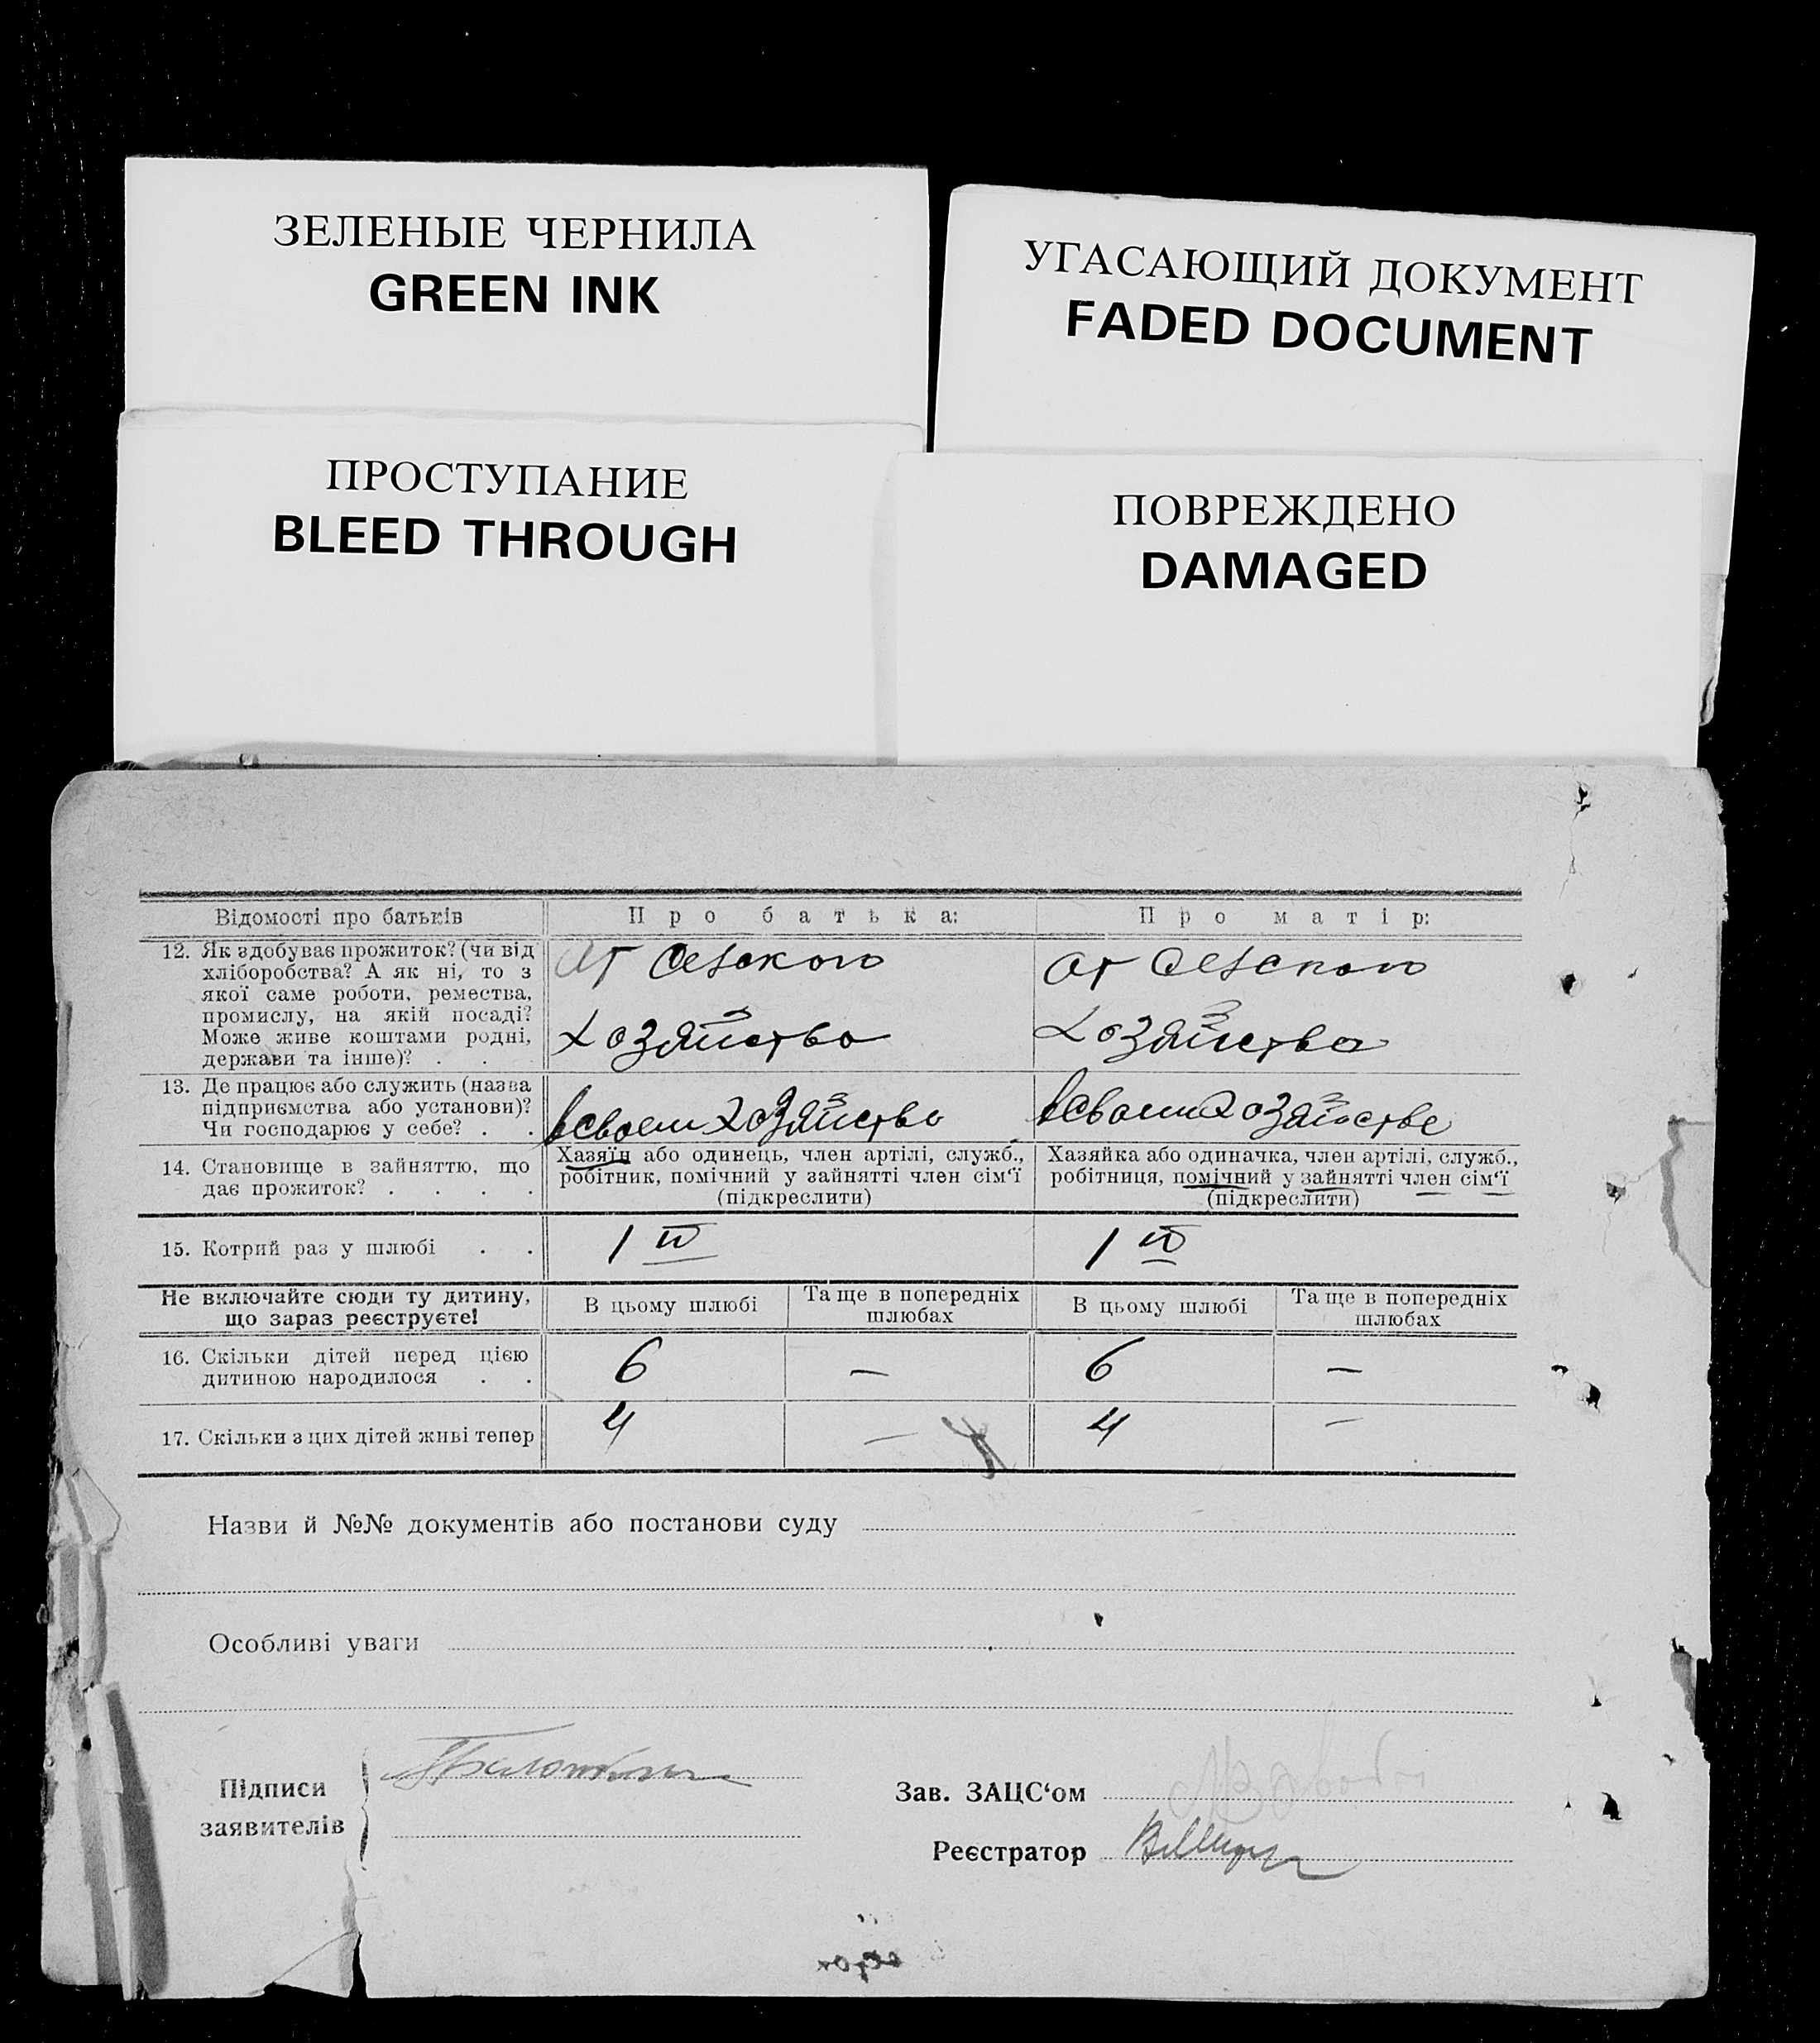 ЗЕЛЕНЫЕ ЧЕРНИЛА
GREEN INK
УГАСАЮЩИЙ ДОКУМЕНТ
FADED DOCUMENT
ПРОСТУПАНИЕ
BLEED THROUGH
ПОВРЕЖДЕНО
DAMAGED
Відомості про батьків
Про батька:
Про матір:
12. Як здобуває прожиток? (чи від
хліборобства? А як ні, то з
якої саме роботи, ремества,
промислу, на якій посаді?
Може живе коштами родні,
держави та інше)? . .
от сельского
хозяйства
от сельского
хозяйства
13. Де працює або служить (назва
підприємства або установи)?
Чи господарює у себе? . .
в своем хозяйстве
в своем хозяйстве
14. Становище в зайняттю, що
дає прожиток? . . . .
Хазяїн або одинець, член артілі, служб.,
робітник, помічний у зайнятті член сім'ї
(підкреслити)
Хазяйка або одиначка, член артілі, служб.,
робітниця, помічний у зайнятті член сім'ї
(підкреслити)
15. Котрий раз у шлюбі . .
1 й
1 й
Не включайте сюди ту дитину,
що зараз реєструєте!
В цьому шлюбі
Та ще в попередніх
шлюбах
В цьому шлюбі
Та ще в попередніх
шлюбах
16. Скільки дітей перед цією
дитиною народилося . .
6
—
6
—
17. Скільки з цих дітей живі тепер
4
—
4
—
Назви й №№ документів або постанови суду
Особливі уваги
Підписи
заявителів
Зав. ЗАЦС'ом
Реєстратор